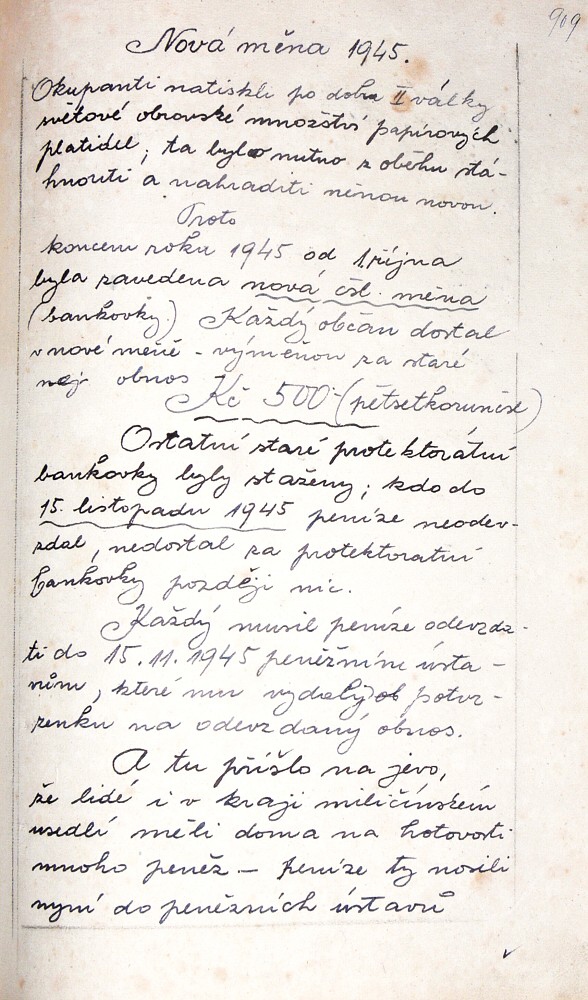 909
Nová měna 1945.
Okupanti natiskli po dobu II války
světové obrovské množství papírových
platidel; ta bylo nutno z oběhu stá-
hnouti a nahraditi měnou novou.
Proto
koncem roku 1945 od 1. října
byla zavedena nová čsl. měna
(bankovky) Každý občan dostal
v nové měně - výměnou za staré
nej obnos Kč 500- (pětsetkorunčsl)
Ostatní staré protektorátní
bankovky byly staženy; kdo do
15. listopadu 1945 peníze neodev-
zdal, nedostal za protektoratní
bankovky později nic.
Každý musil peníze odevzda-
ti do 15.11.1945 peněžním ústa-
vům, které mu vydaly potvr-
zenku na odevzdaný obnos.
A tu přišlo na jevo,
že lidé i v kraji miličínském
usedlí měli doma na hotovosti
mnoho peněz - Peníze ty nosili
nyní do peněžních ústavů